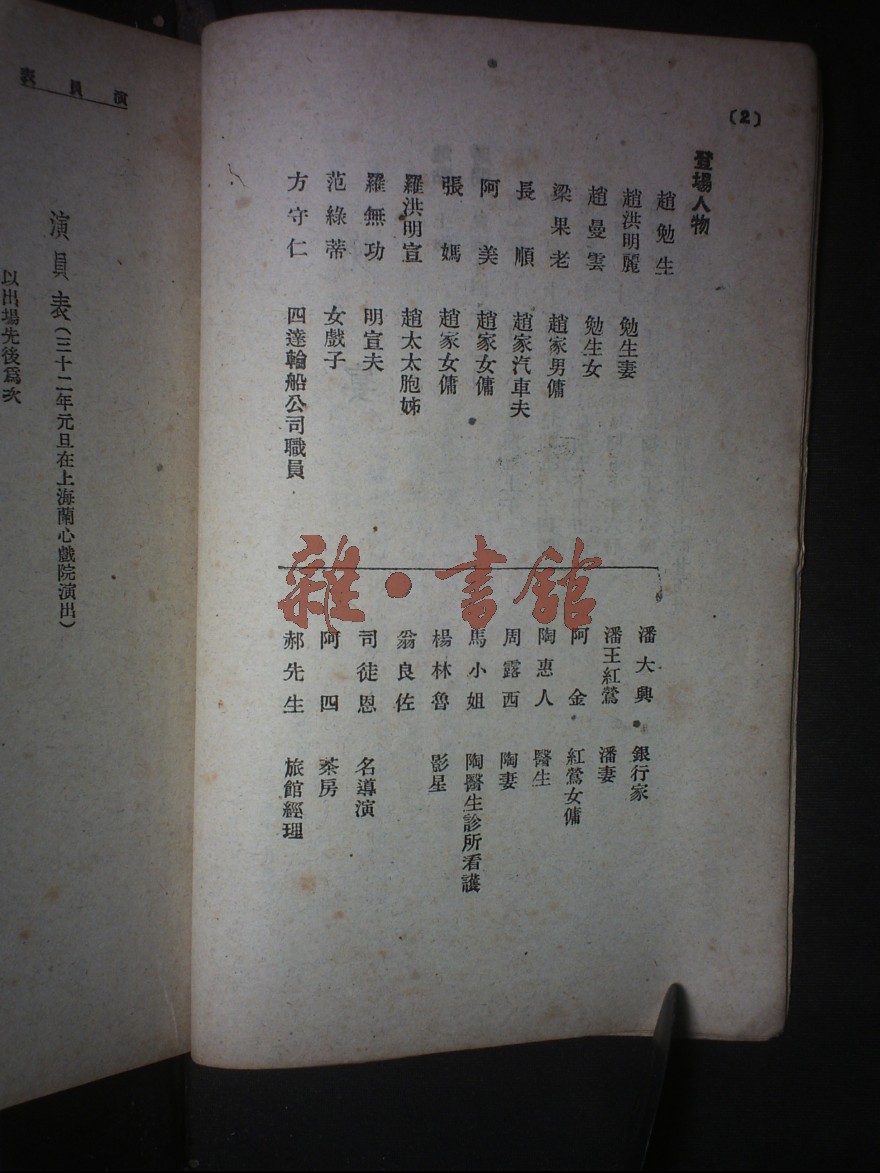 (2)
登場人物
趙勉生
趙洪明麗 勉生妻
趙曼雲 勉生女
梁果老 趙家男傭
長順 趙家汽車夫
阿美 趙家女傭
張媽 趙家女傭
羅洪明宣 趙太太胞姊
羅無功 明宣夫
范綠蒂 女戲子
方守仁 四達輪船公司職員
潘大興 銀行家
潘王紅鶯 潘妻
阿金 紅鶯女傭
陶惠人 醫生
周露西 陶妻
馬小姐 陶醫生診所看護
楊林魯 影星
翁良佐
司徒恩 名導演
阿四 茶房
郝先生 旅館經理
雜·書館
演員表
演員表(三十二年元旦在上海蘭心戲院演出)
以出場先後爲次